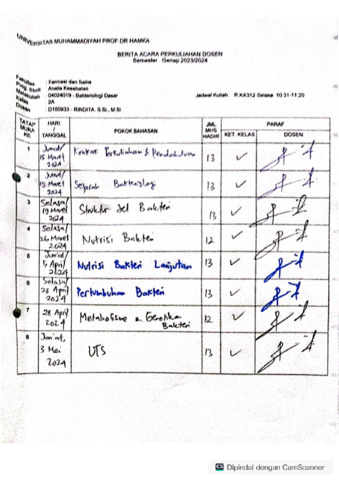 UNIVERSITAS MUHAMMADIYAH PROF DR HAMKA
BERITA ACARA PERKULIAHAN DOSEN
Semester Genap 2023/2024
Fakultas : Farmasi dan Sains
Prog. Studi : Analis Kesehatan
Matakuliah : 04024019 - Bakteriologi Dasar
Jadwal Kuliah : R.KA312 Selasa 10.31-11.20
Kelas : 2A
Dosen : D150933 - RINDITA, S.Si., M.Si.
TATAP MUKA KE HARI / TANGGAL POKOK BAHASAN JML MHS HADIR PARAF
KET. KELAS DOSEN
1 Jumat/ 15 Maret 2024 Kontrak Perkuliahan & Pendahuluan 13 ✓
2 Jumat/ 15 Maret 2024 Sejarah Bakteriologi 13 ✓
3 Selasa/ 19 Maret 2024 Struktur Sel Bakteri 13 ✓
4 Selasa/ 26 Maret 2024 Nutrisi Bakteri 12 ✓
5 Jum'at/ 5 April 2024 Nutrisi Bakteri Lanjutan 13 ✓
6 Selasa/ 23 April 2024 Pertumbuhan Bakteri 13 ✓
7 April 2024 Metabolisme & Genetika Bakteri 12 ✓
8 Jum'at, 3 Mei 2024 UTS 13 ✓
CS Dipindai dengan CamScanner